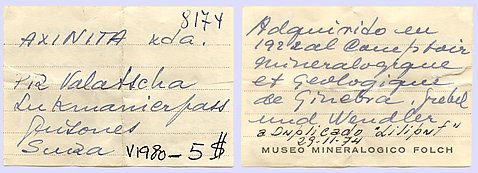 8174
AXINITA xda.
Piz Valatscha
Lukmanierpass
Grisones
Suiza V1980 - 5 $
Adquirido en
1922 al Comptoir
mineralogique
et Geologique
de Ginebra. Grebel
und Wendler
a Duplicado "Liliput"
29-11-74
MUSEO MINERALOGICO FOLCH